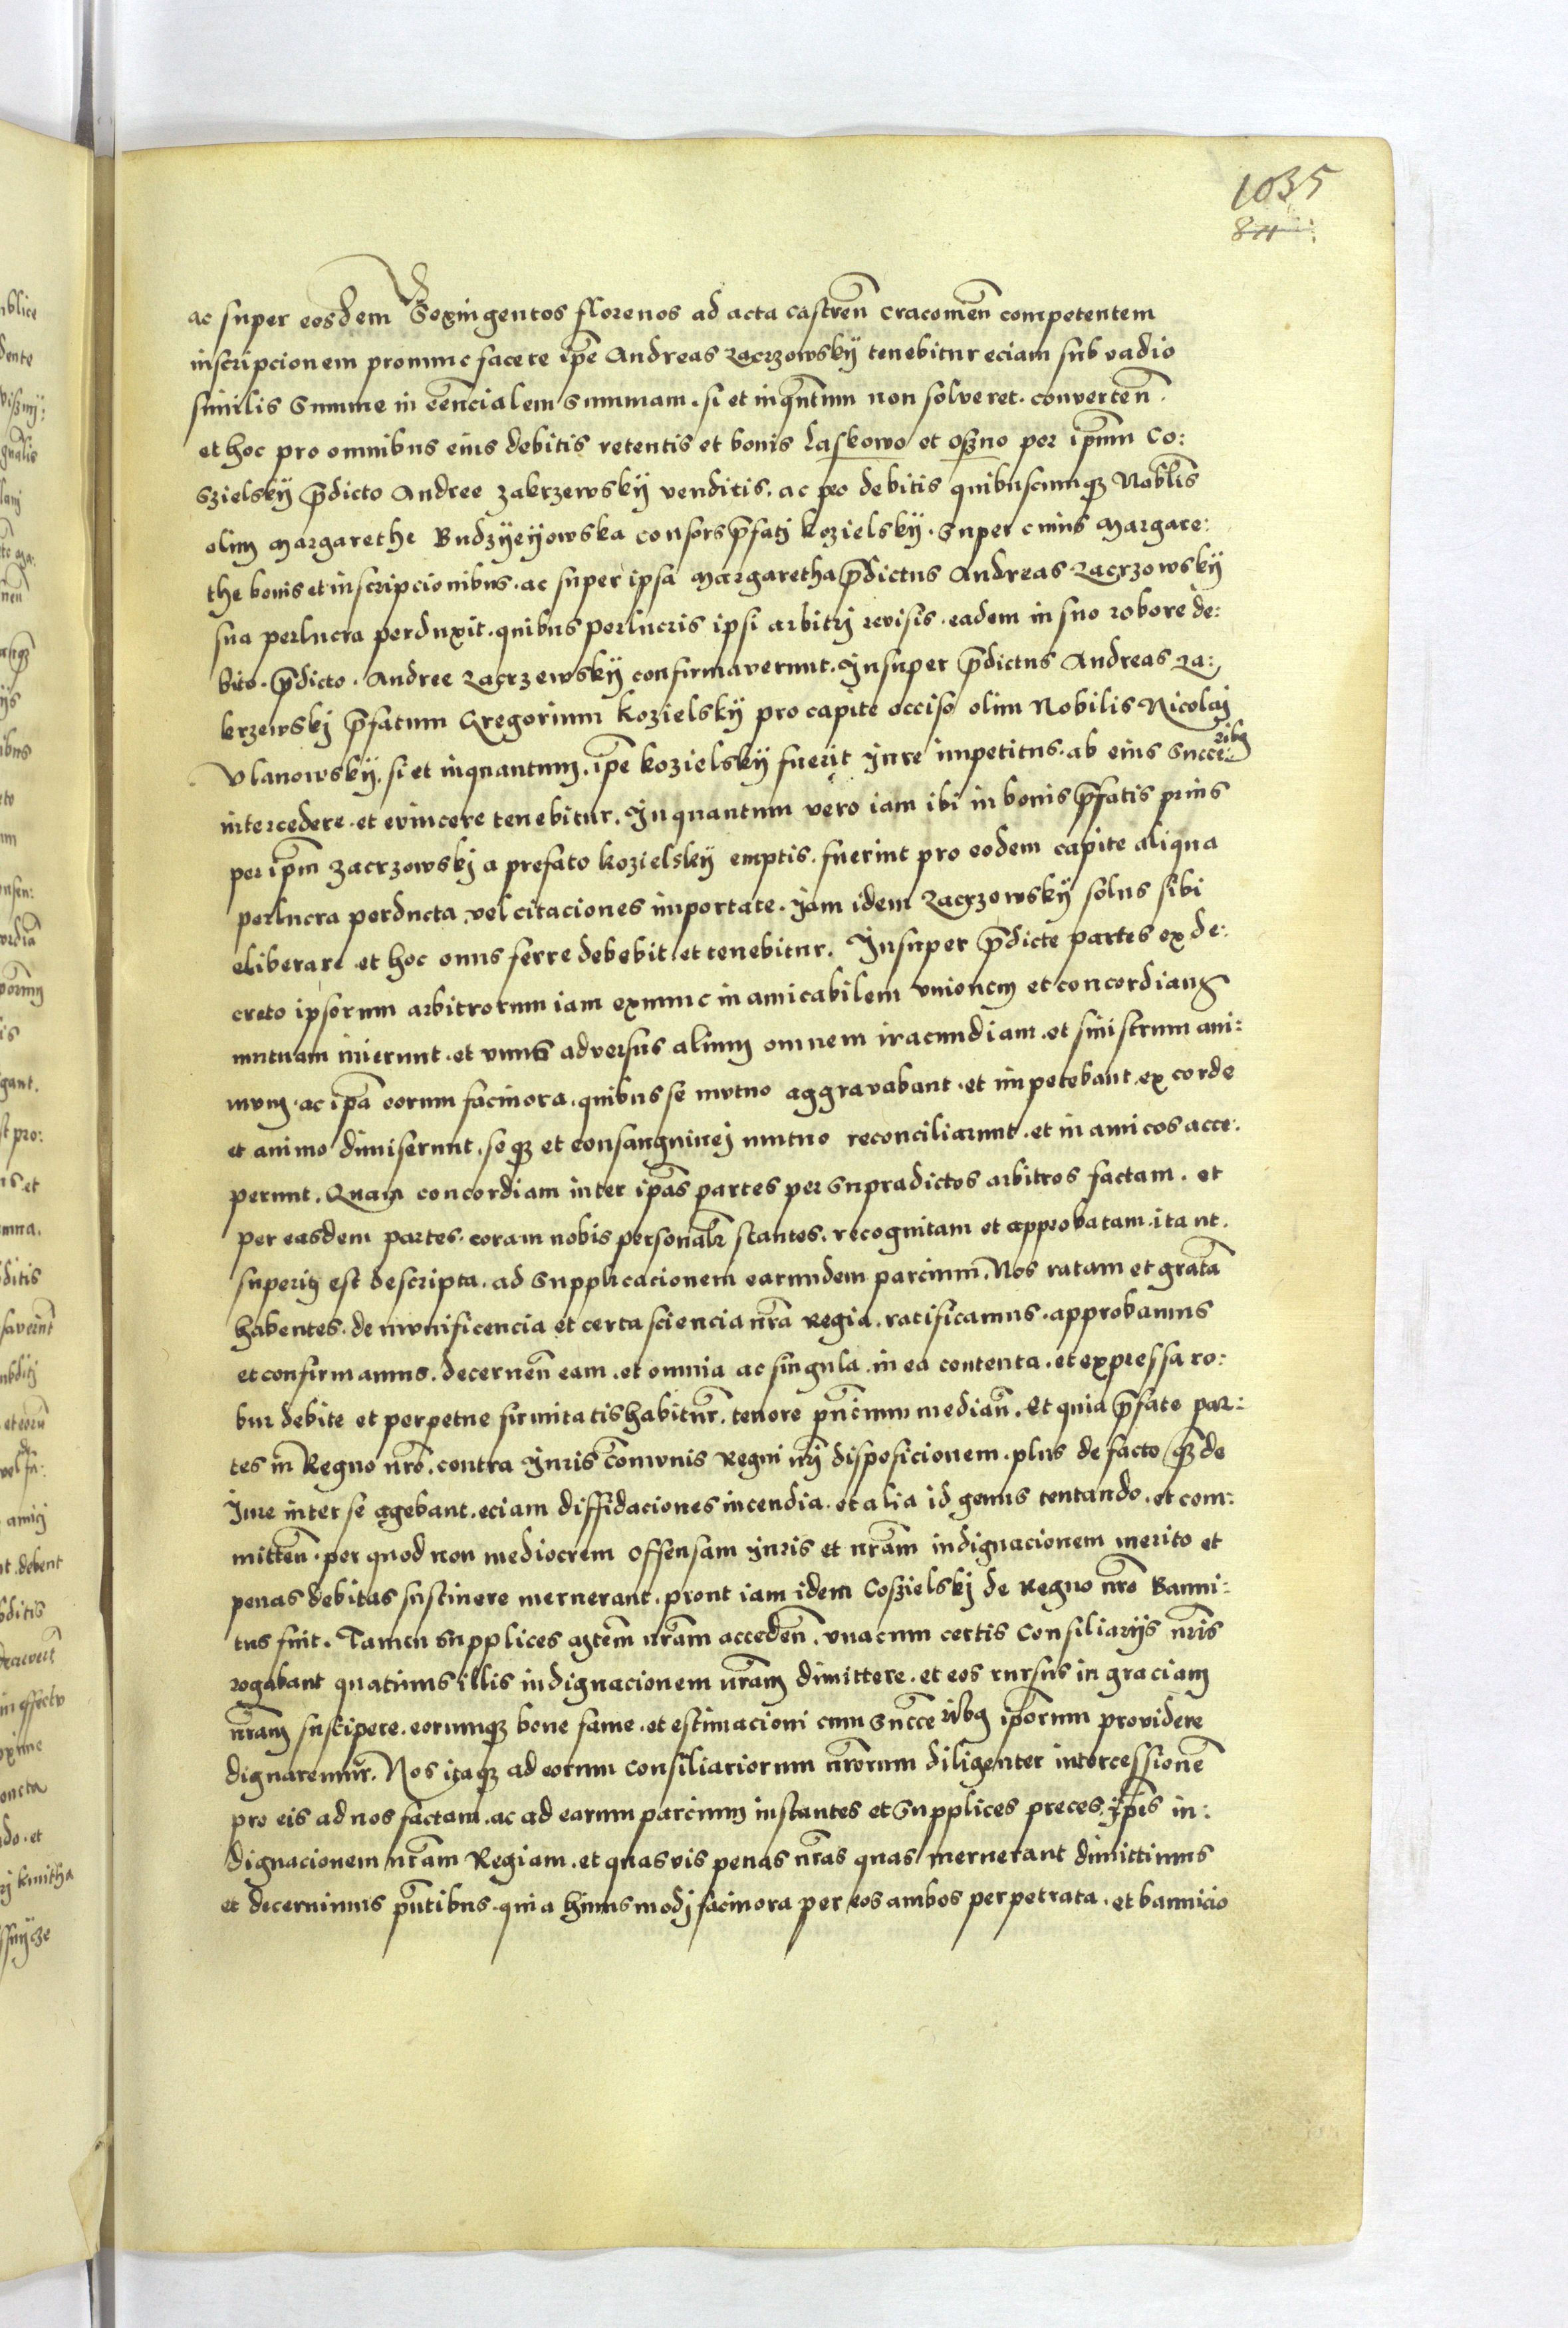 1035
ac super eosdem Sexingentos florenos ad acta castren̄ cracouien̄ competentem
inscripcionem pronunc facere ip̄e Andreas Zacrzowskÿ tenebitur eciam sub vadio
similis summe in een̄cialem summam. si et inqn̄tum non solveret. converten̄.
et hoc pro omnibus eius debitis retentis et bonis Laskowo et oszno per ip̄um Co:
szielskÿ p̄dicto Andree zakrzewskÿ venditis. ac pro debitis quibuscumqꝫ Nobl̄is
olim Margarethe Budzÿeÿowska consors p̄fatj kozielskÿ. super cuius Margare:
the bonis et inscripcionibus. ac super ipsa Margaretha p̄dictus Andreas Zacrzowskÿ
sua perlucra perduxit. quibus perlucris ipsi arbitrj revisis. eadem in suo robore de:
bito. p̄dicto. Andree Zacrzewskÿ confirmaverunt. Insuper p̄dictus Andreas Za:
krzewskj p̄fatum Gregorium kozielskÿ pro capite occiso olim Nobilis Nicolaj
Vlanowskÿ. si et inquantum. ip̄e kozielskÿ fuerit Jure impetitus. ab eius succe:ribꝫ
intercedere. et evincere tenebitur. Inquantum vero iam ibi in bonis p̄fatis prius
per ip̄m zacrzowskj a prefato kozielskÿ emptis. fuerint pro eodem capite aliqua
perlucra perducta vel citaciones importate. Jam idem Zacrzowskÿ solus sibi
eliberare et hoc onus ferre debebit et tenebitur. Insuper p̄dicte partes ex de:
creto ipsorum arbitrorum iam exnunc in amicabilem vnionem et concordiam
mutuam inierunt. et vnus adversus alium omnem iracundiam. et sinistrum ani:
mum. ac ip̄a eorum facinora. quibus se mutuo aggravabant. et impetebant. ex corde
et animo dimiserunt. seqꝫ et consanguinej mutuo reconciliarunt. et in amicos acce:
perunt. Quam concordiam inter ip̄as partes per supradictos arbitros factam. et
per easdem partes. coram nobis personalr̄ stantes. recognitam et approbatam. ita ut.
superiꝫ est descripta. ad supplicacionem earundem parcium. Nos ratam et gratā
habentes. de munificencia et certa sciencia nr̄a Regia. ratificamus. approbamus
et confirmamus. decernen̄ eam. et omnia ac singula in ea contenta. et expressa ro:
bur debite et perpetue firmitatis habitur̄. tenore pn̄cium median̄. Et quia p̄fate par:
tes in Regno nr̄o. contra Juris com̄unis Regni nr̄j disposicionem. plus de facto qꝫ de
Jure inter se agebant. eciam diffidaciones incendia. et alia id genus tentando. et com:
mitten̄. per quod non mediocrem offensam Juris et nr̄am indignacionem merito et
penas debitas sustinere meruerant. prout iam idem Coszielskj de Regno nr̄o Banni:
tus fuit. Tamen supplices mtēm nr̄am acceden̄. vnacum certis Consiliarÿs nr̄is
rogabant quatinus illis indignacionem nr̄am dimittere. et eos rursus in graciam
nr̄am suscipere. eorumqꝫ bone fame. et estimacioni cum succeribꝫ ip̄orum providere
dignaremur̄. Nos itaqꝫ ad eorum consiliariorum nr̄orum diligenter intercessionē
pro eis ad nos factam. ac ad earum parcium instantes et supplices preces ip̄is in:
dignacionem nr̄am Regiam. et quasvis penas nr̄as quas meruerant dimittimus
et decernimus pn̄tibus. quia huiusmodj facinora per eos ambos perpetrata. et bannicio